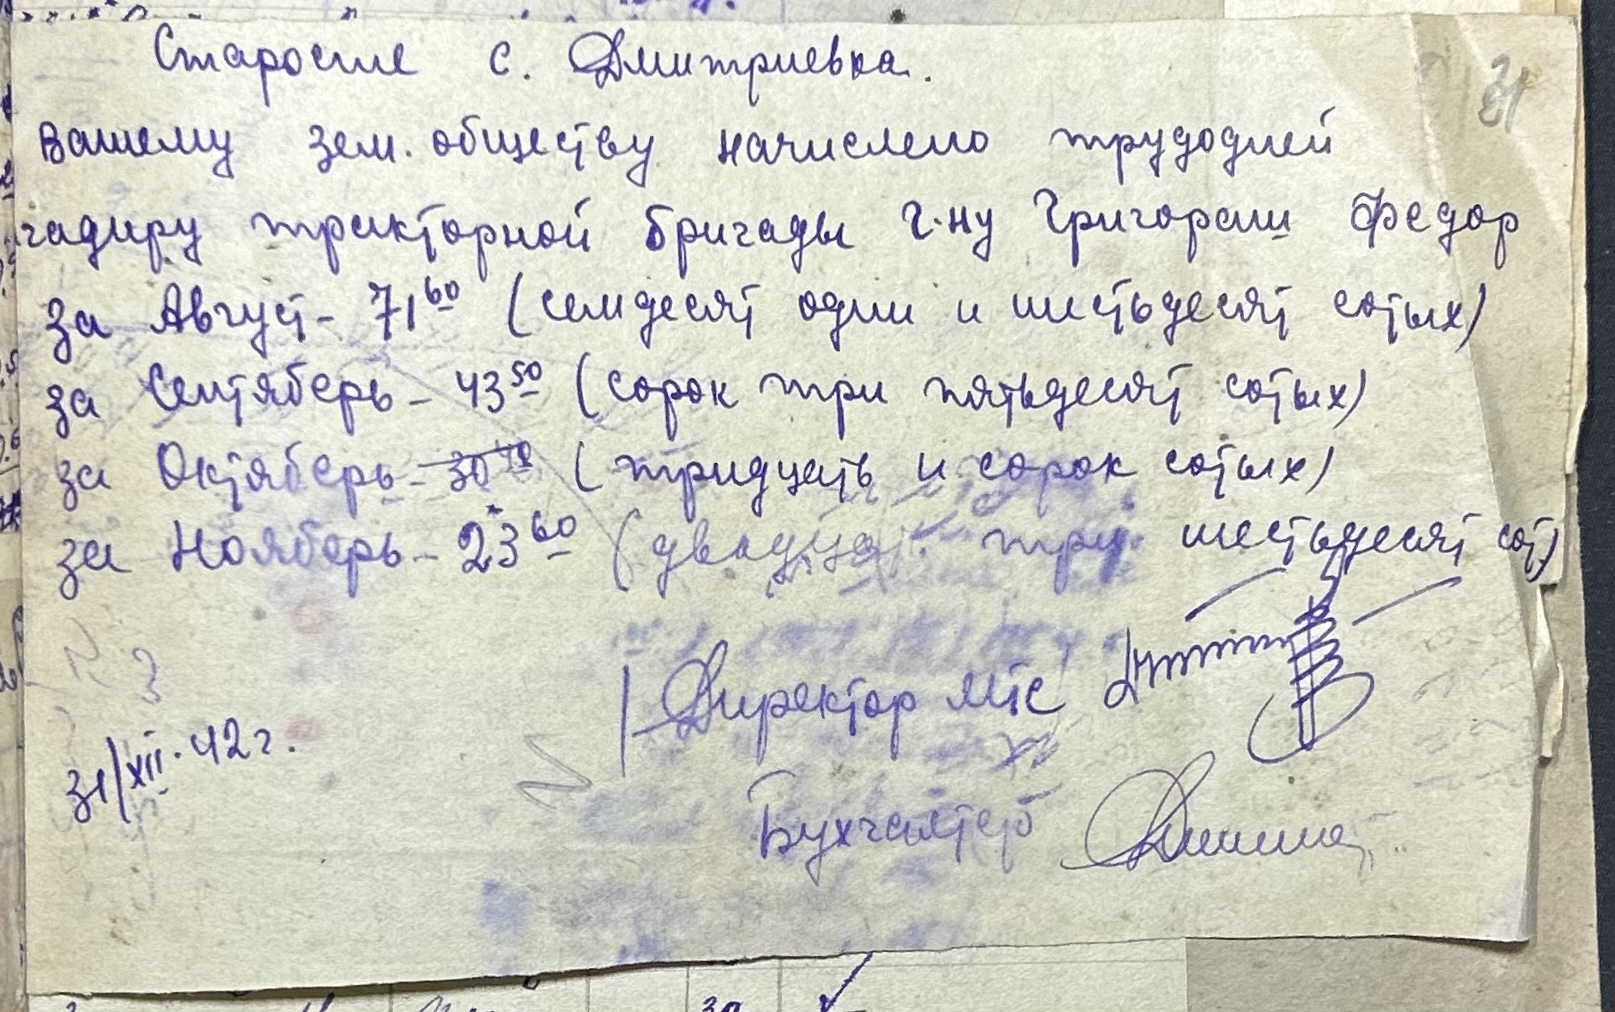 Старосте с. Дмитриевка.
31
Вашему зем. обществу начислено трудодней
гадиру тракторной бригады г-ну Григораш Федор
за Август - 71 60 (семдесят один и шестьдесят сотых)
за Сентяберь - 43 50 (сорок три пятьдесят сотых)
за Октяберь - 30 40 (тридцать и сорок сотых)
за Нояберь - 23 60 (двадцат три шестьдесят сот)
Директор мтс
31/XII. 42 г.
Бухгалтер